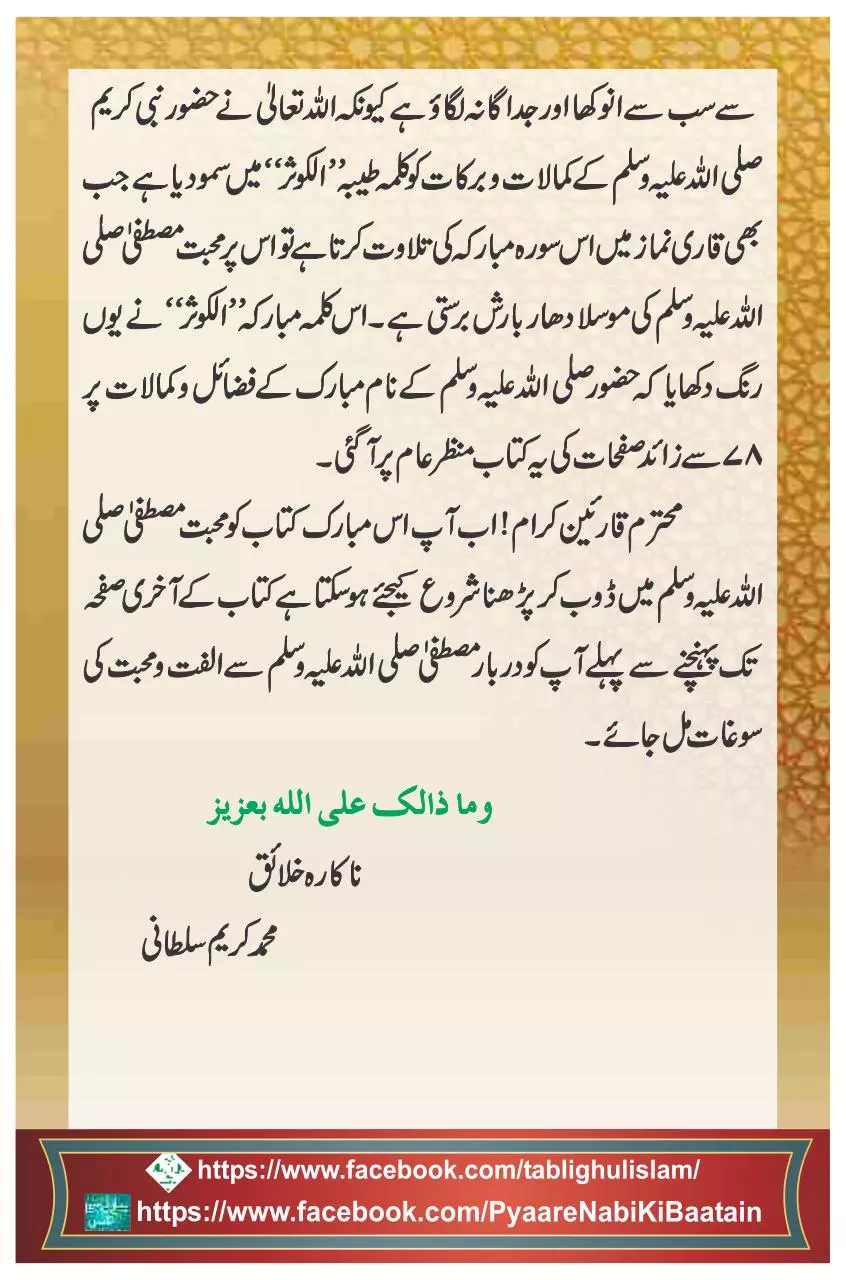 سے سب سے انوکھا اور جداگانہ لگاؤ ہے کیونکہ اللہ تعالیٰ نے حضور نبی کریم
صلی اللہ علیہ وسلم کے کمالات و برکات کو کلمہ طیبہ ’’الکوثر‘‘ میں سمو دیا ہے جب
بھی قاری نماز میں اس سورہ مبارکہ کی تلاوت کرتا ہے تو اس پر محبت مصطفیٰ صلی
اللہ علیہ وسلم کی موسلا دھار بارش برستی ہے۔ اس کلمہ مبارکہ ’’الکوثر‘‘ نے یوں
رنگ دکھایا کہ حضور صلی اللہ علیہ وسلم کے نام مبارک کے فضائل و کمالات پر
۷۸ سے زائد صفحات کی یہ کتاب منظر عام پر آگئی۔
محترم قارئین کرام! اب آپ اس مبارک کتاب کو محبت مصطفیٰ صلی
اللہ علیہ وسلم میں ڈوب کر پڑھنا شروع کیجئے ہوسکتا ہے کتاب کے آخری صفحہ
تک پہنچنے سے پہلے آپ کو دربار مصطفیٰ صلی اللہ علیہ وسلم سے الفت و محبت کی
سوغات مل جائے۔
وما ذالک علی اللہ بعزیز
ناکارہ خلائق
محمد کریم سلطانی
https://www.facebook.com/tablighulislam/
https://www.facebook.com/PyaareNabiKiBaatain